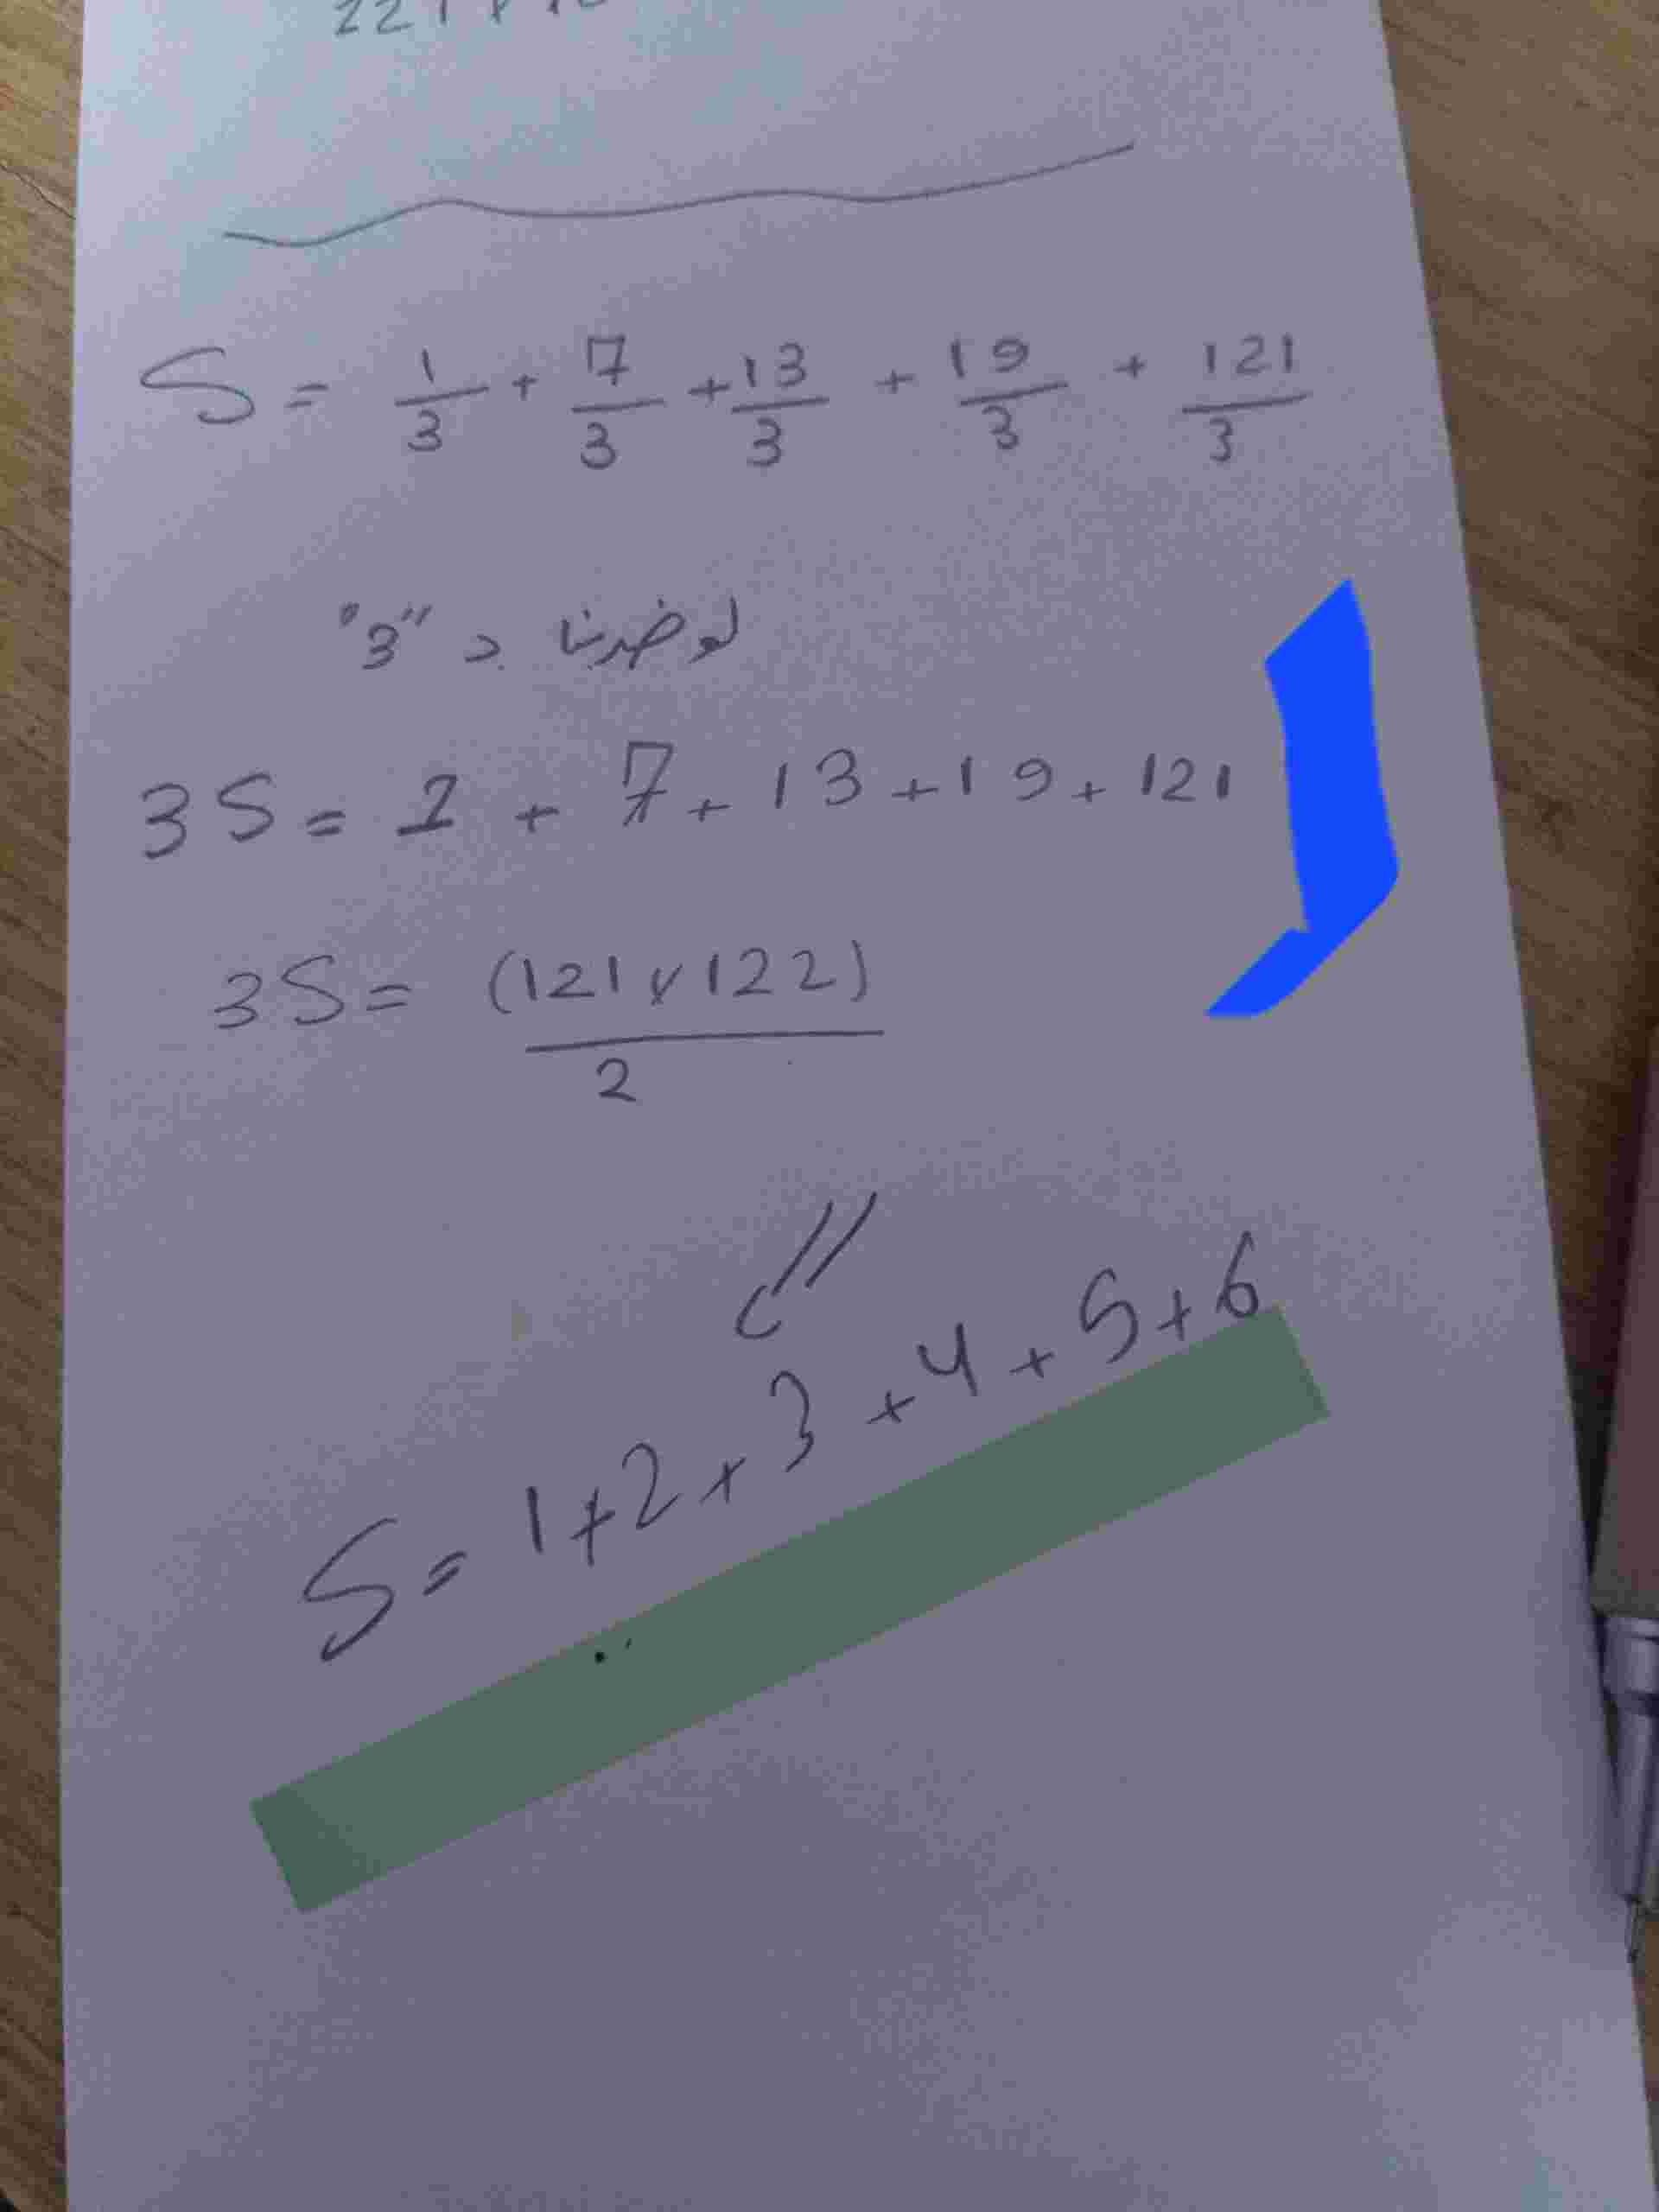 S = 1/3 + 7/3 + 13/3 + 19/3 + 121/3
لو ضربنا د "3"
3S = 1 + 7 + 13 + 19 + 121
3S = (121 x 122) / 2
S = 1 + 2 + 3 + 4 + 5 + 6